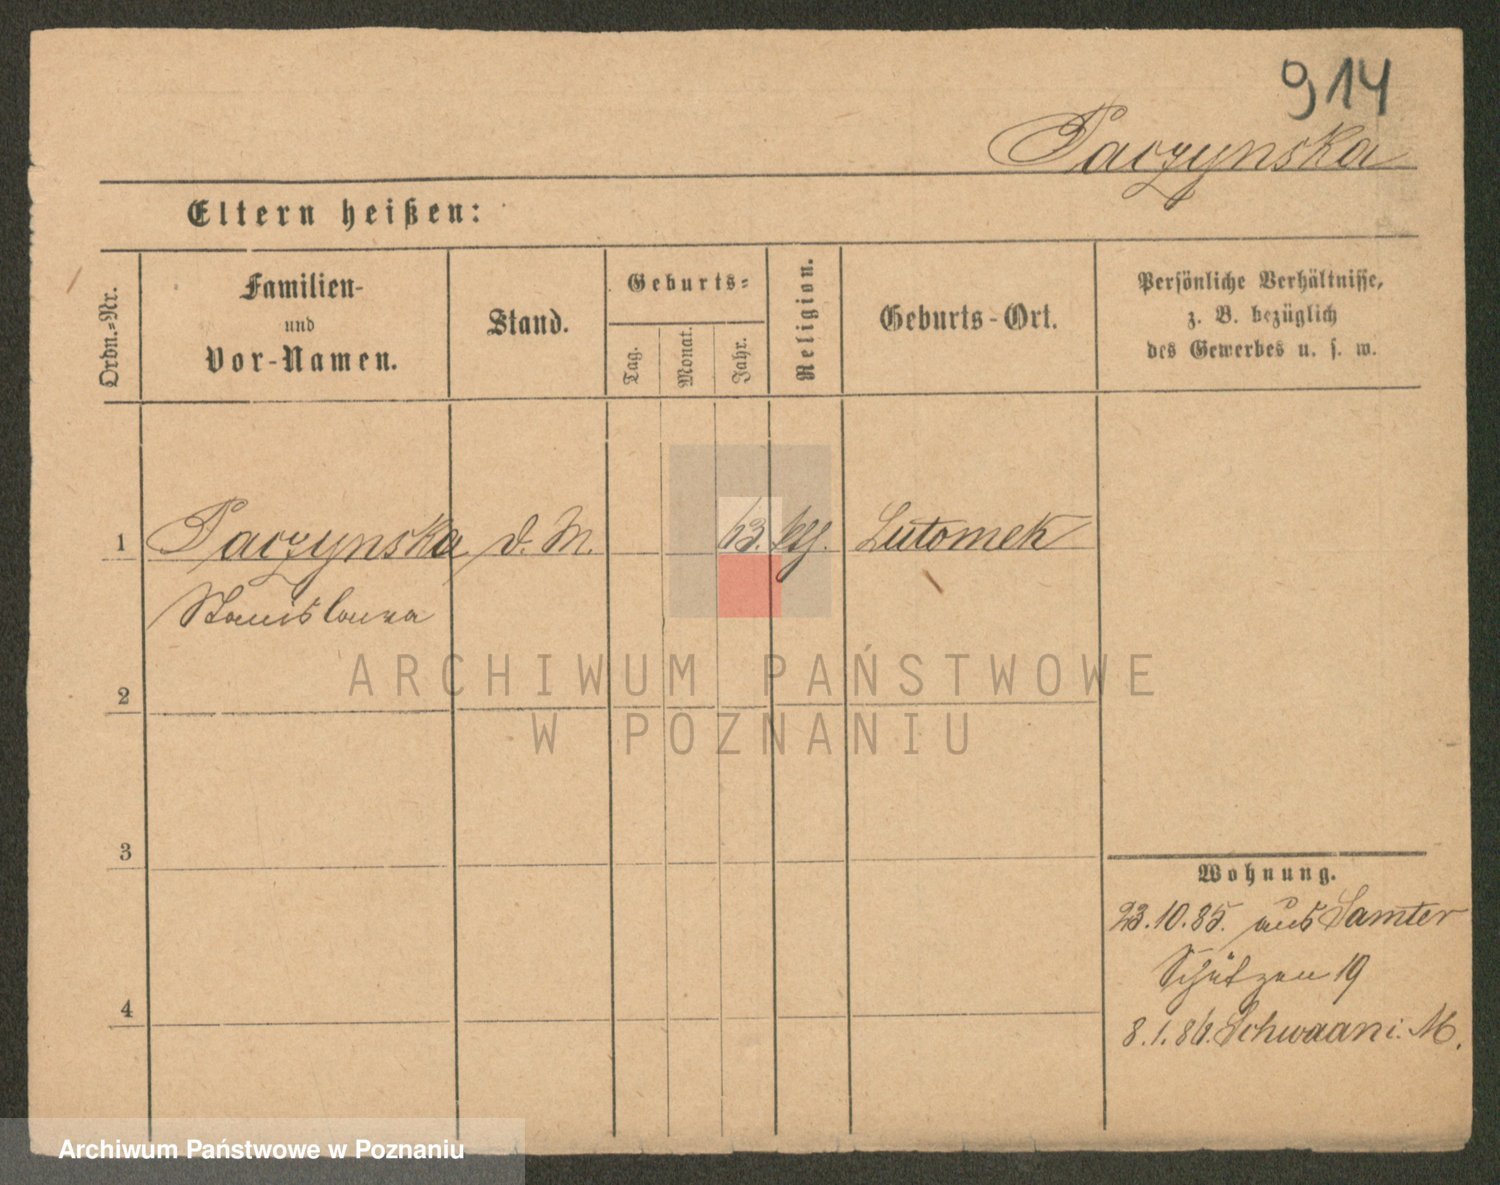 914
Paczynska
Eltern heißen:
Ordn.=Nr.
Familien-
und
Vor-Namen.
Stand.
Geburts=
Tag.
Monat.
Jahr.
Religion.
Geburts-Ort.
Persönliche Verhältnisse,
z. B. bezüglich
des Gewerbes u. s. w.
1 Paczynska d. M. 63. Lutomek
Stanislawa
ARCHIWUM PAŃSTWOWE
W POZNANIU
2
3
4
Wohnung.
23.10.85. aus Samter
Schützen 19
8.1.86. Schwaan i. M.
Archiwum Państwowe w Poznaniu